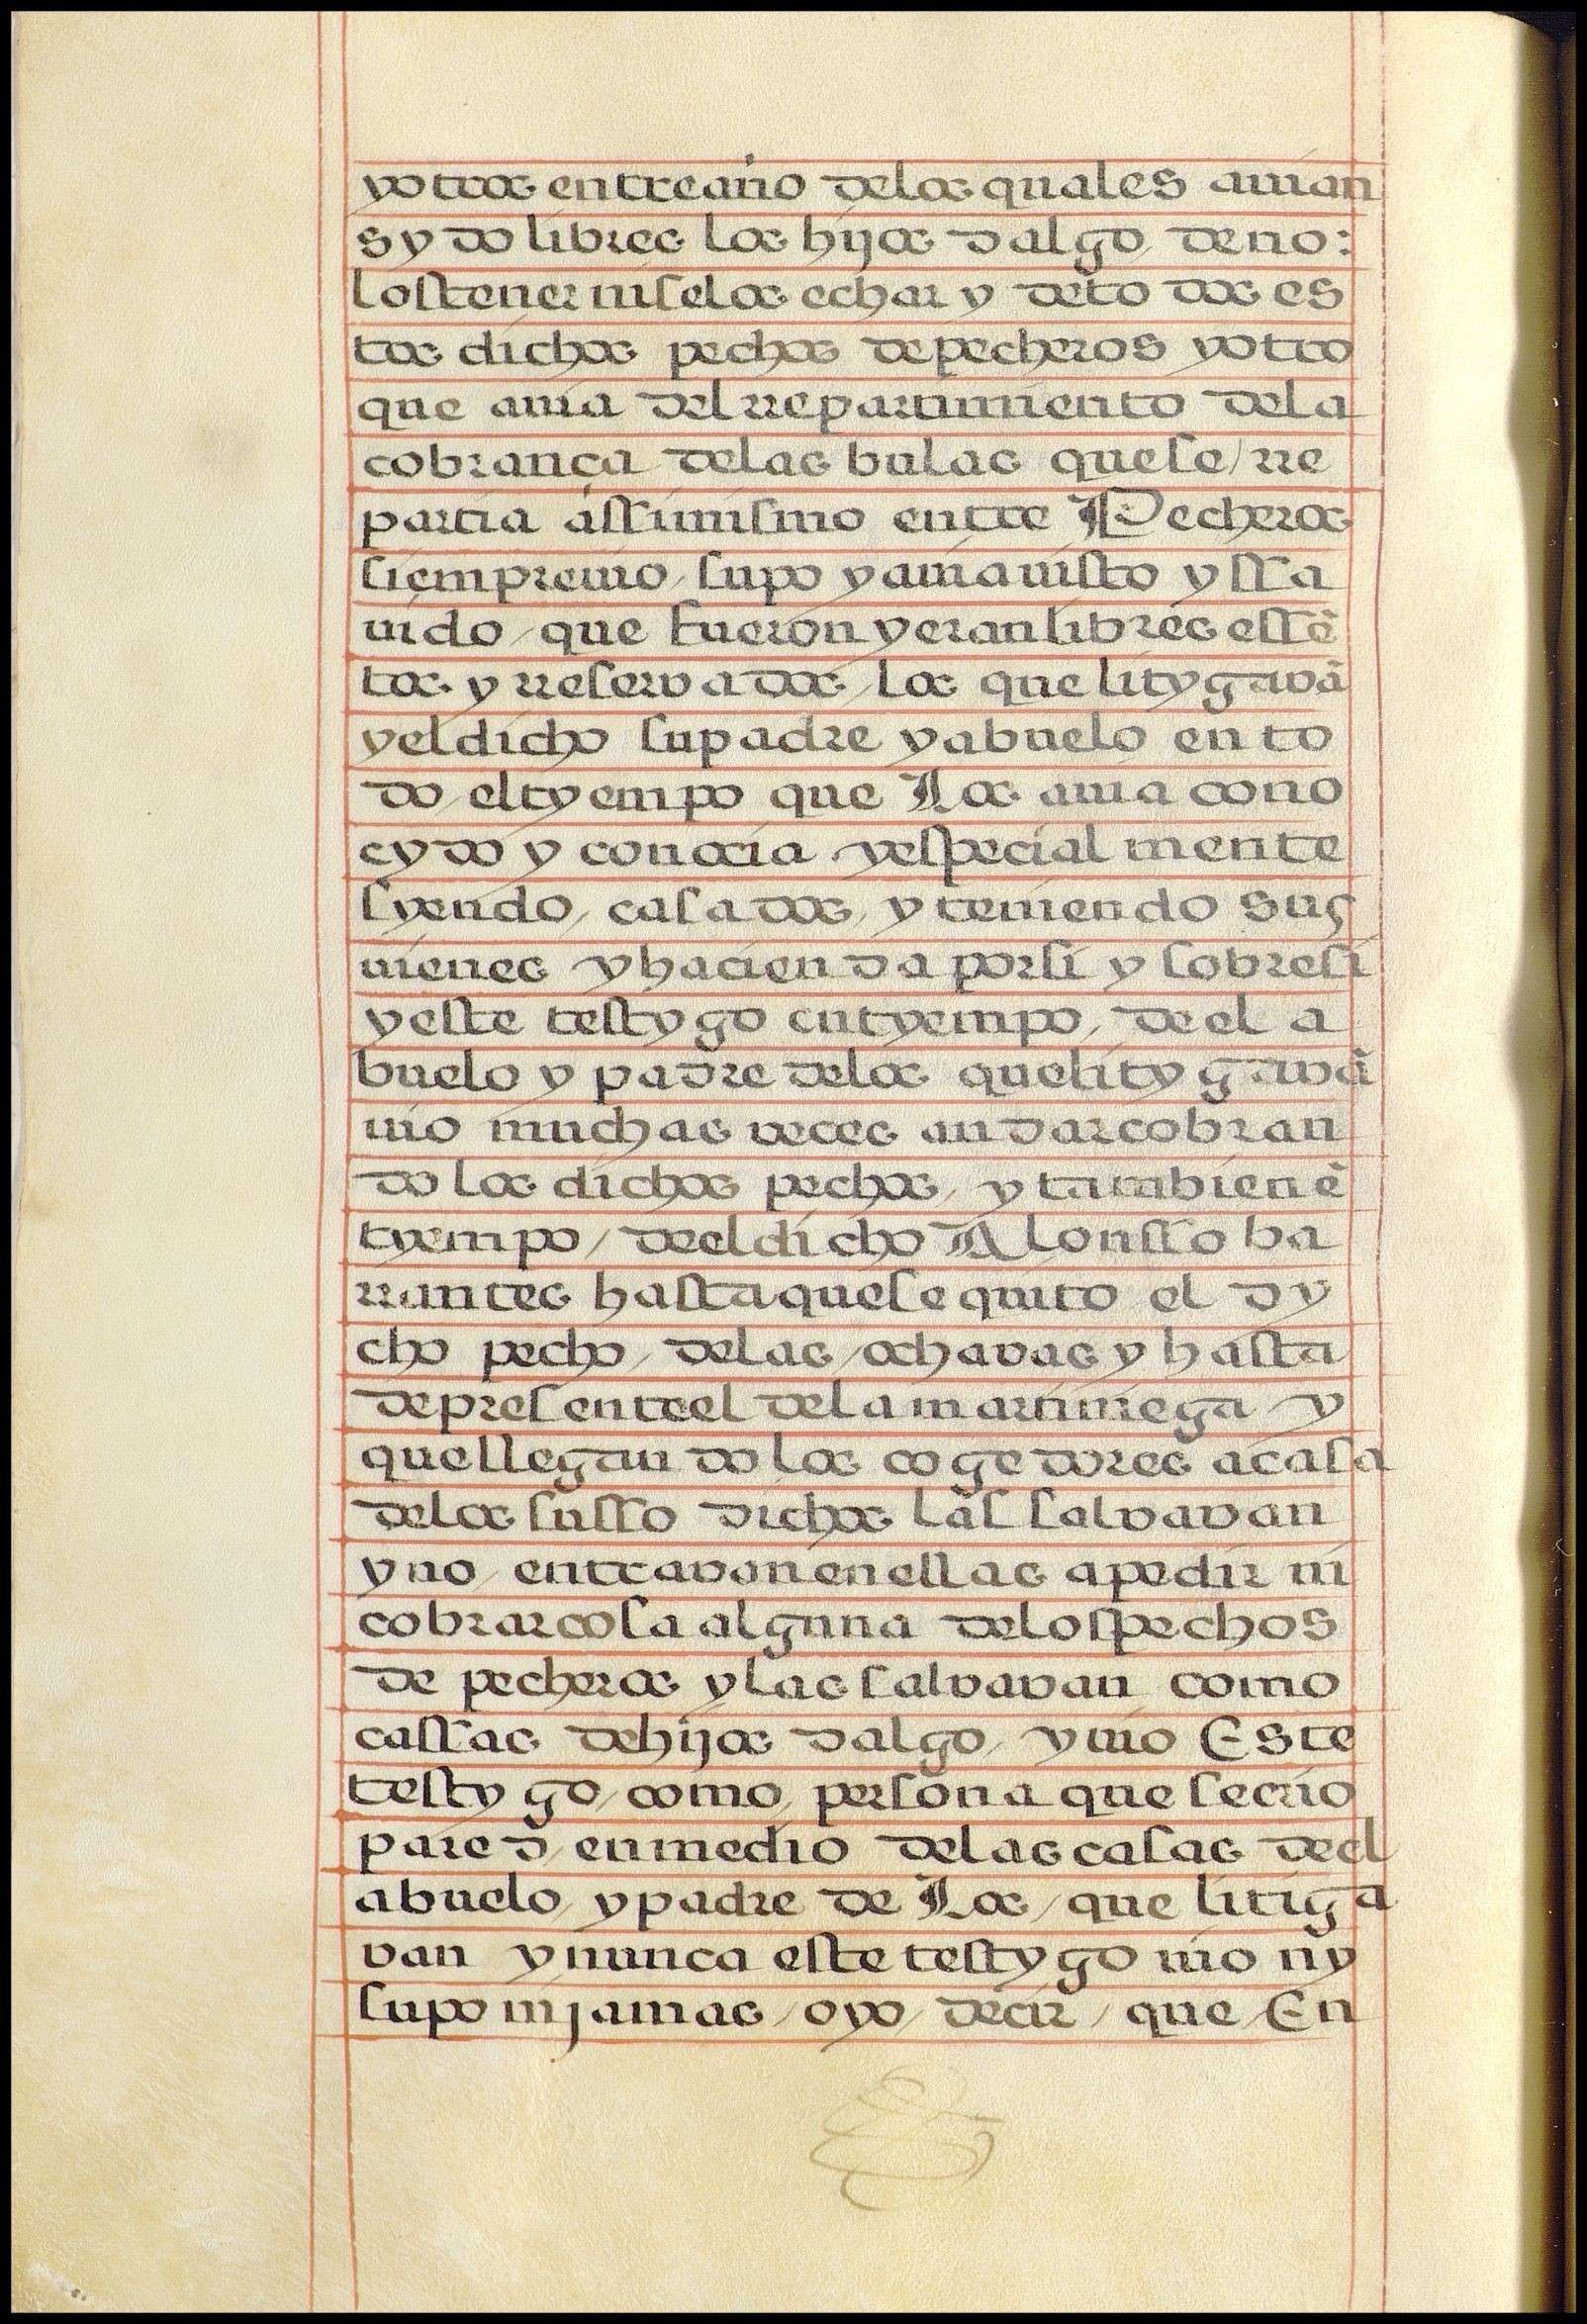 yotros entreaño delos quales auian
sydo libres los hijos dalgo deno:
lostener niselos echar y detodos es
tos dichos pechos depecheros yotro
que auia del rrepartimiento dela
cobrança delas bulas quese/rre
partia assimismo entre Pecheros
siemprevio/supo yauiauisto yssa
uido/que fueron yeranlibres essē
tos yrreservados/los que litygavā
yeldicho supadre yabuelo ento
do/eltyempo que Los auia cono
cydo y conocia yespecialmente
syendo/casados/yteniendo sus
uienes yhacienda porsi y sobresi
yeste testygo entyempo/deel a
buelo y padre delos quelitygavā
uio muchas veces andarcobran
do los dichos pechos/y tambienē
tyempo/deeldicho Alonsso ba
rrantes hastaquesequito el dy
cho pecho/delas/ochavas y hasta
depresenteel delamartiniega y
quellegando los cogedores acasa
delos susso dichos lassalvavan
yno/entravanenellas apedir ni
cobrarcosaalguna delospechos
de pecheros ylassalvavan como
cassas dehijos dalgo/yuio Este
testygo/como/persona que secrio
pared/enmedio delascasas deel
abuelo/ypadre de Los/que litiga
van ynunca estetestygo uio ny
supo nj amas/oyo/decir/que/En